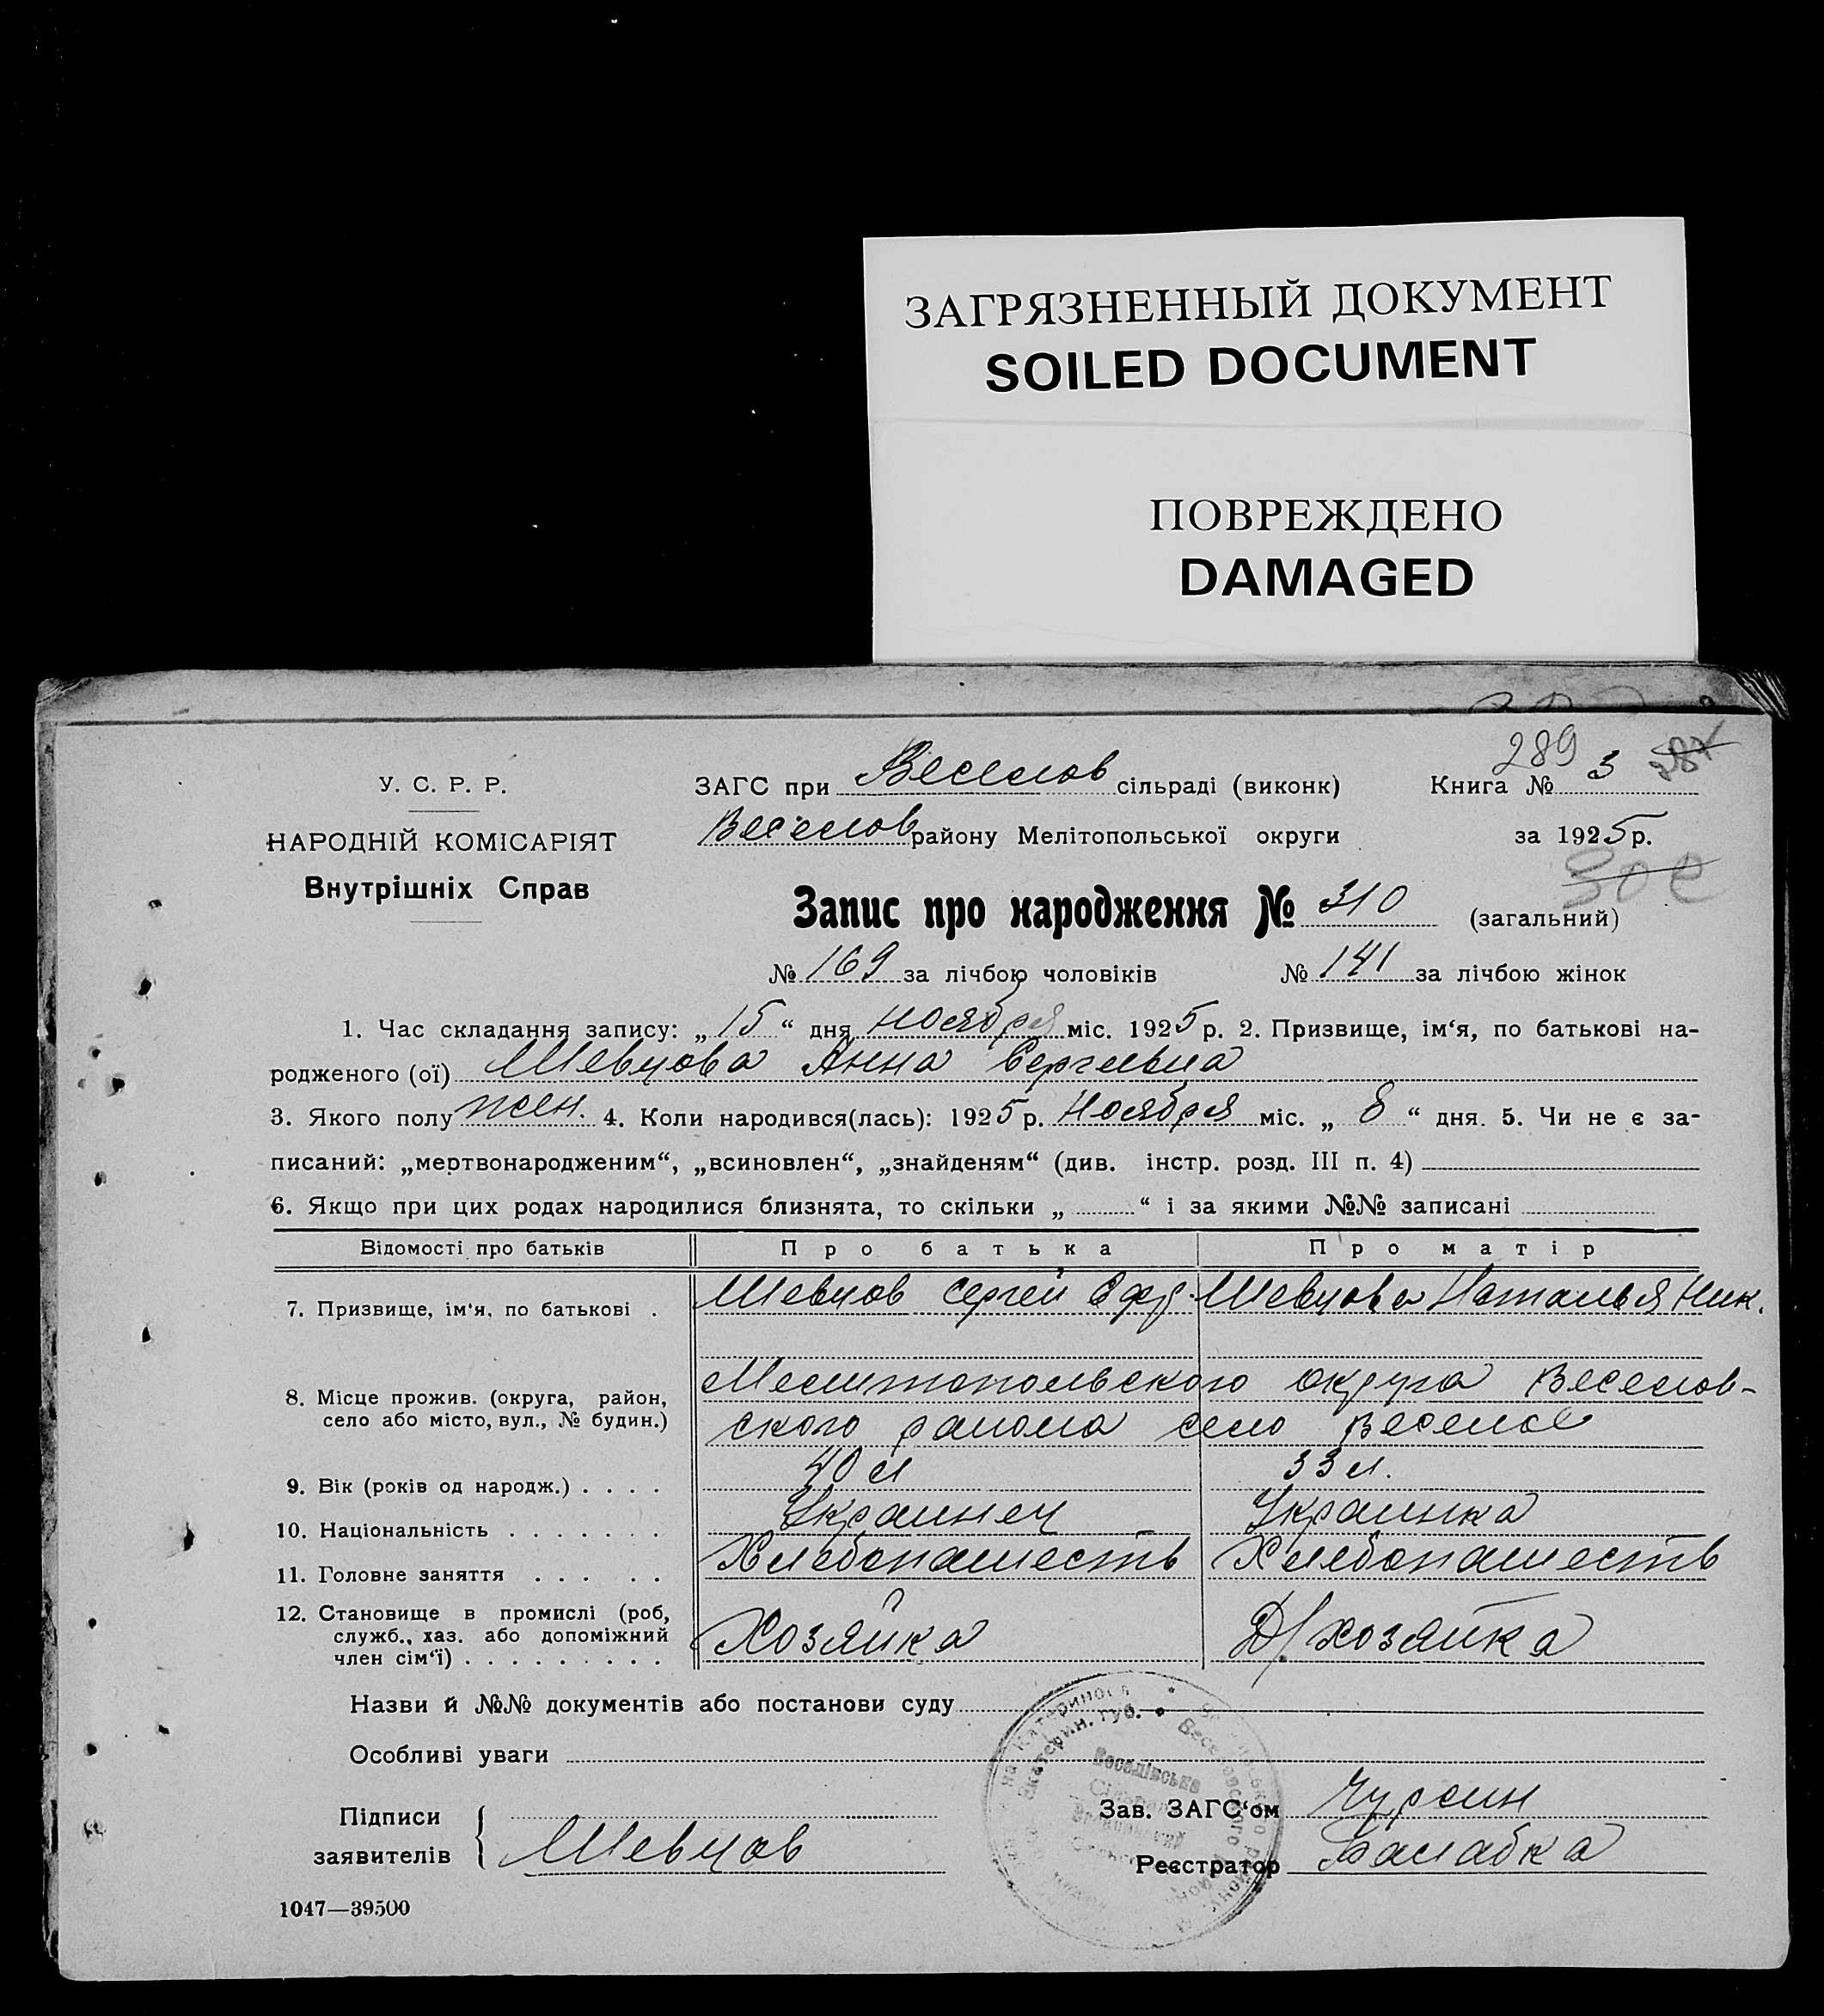 ЗАГРЯЗНЕННЫЙ ДОКУМЕНТ
SOILED DOCUMENT
ПОВРЕЖДЕНО
DAMAGED
289 3 287
У. С. Р. Р. ЗАГС при Веселов сільраді (виконк) Книга №
НАРОДНІЙ КОМІСАРІЯТ Веселов району Мелітопольської округи за 1925 р.
Внутрішніх Справ
Запис про народження № 310 (загальний)
№ 169 за лічбою чоловіків № 141 за лічбою жінок
1. Час складання запису: „ 15 “ дня ноября міс. 1925 р. 2. Призвище, ім‘я, по батькові на-
родженого (ої) Шевцова Анна Сергеевна
3. Якого полу жен. 4. Коли народився(лась): 1925 р. Ноября міс. „ 8 “ дня. 5. Чи не є за-
писаний: „мертвонародженим“, „всиновлен“, „знайденям“ (див. інстр. розд. III п. 4)
6. Якщо при цих родах народилися близнята, то скільки „ “ і за якими №№ записані
Відомості про батьків Про батька Про матір
7. Призвище, ім‘я, по батькові . Шевцов Сергей Шевцова Наталья Ник.
8. Місце прожив. (округа, район, Мелитопольского округа Веселов-
село або місто, вул., № будин.) ского района село Веселое
9. Вік (років од народж.) . . . . 40 л 33 л.
10. Національність . . . . . . . Украинец Украинка
11. Головне заняття . . . . . Хлебопашеств Хлебопашеств
12. Становище в промислі (роб,
служб., хаз. або допоміжний Хозяйка Д/хозяйка
член сім‘ї) . . . . . . . . .
Назви й №№ документів або постанови суду
Особливі уваги
Екатерин. губ. Веселовского
Веселівська
Підписи Зав. ЗАГС‘ом Чурсин
заявителів Шевцов Реєстратор Балабка
1047—39500